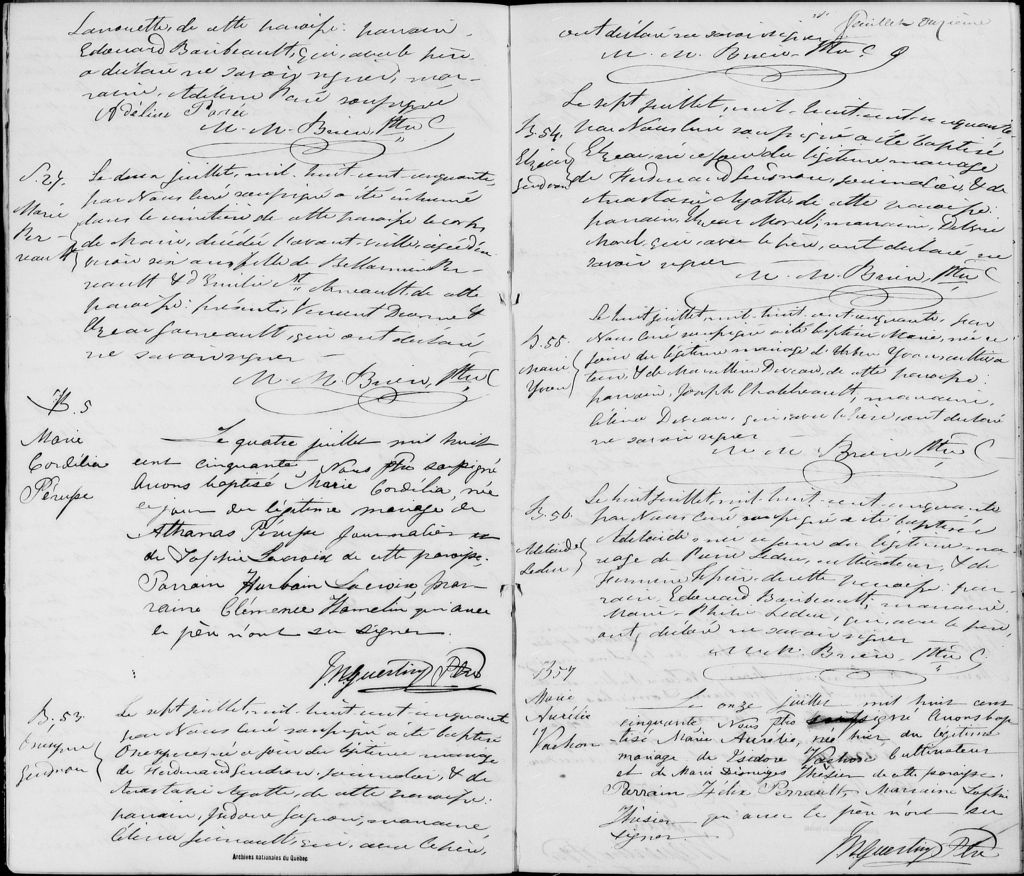 de cette paroisse: parrain,
Edouard Baribeault, qui, avec le père
a déclaré ne savoir signer, mar-
raine, Adeline Paré soussignée
Adeline Parée
M. M. Brien Ptre C
S. 27.
Marie
Per-
reault
Le deux juillet, mil-huit-cent-cinquante,
par Nous Curé soussigné a été inhumé
dans le cimetière de cette paroisse le corps
de Marie, décédée l'avant-veille, agée d'en-
viron un an, fille de Bellarmin Per-
reault & d'Emilie de cette
paroisse: présents, Venant &
qui ont déclaré
ne savoir signer
M. M. Brien, Ptre C
B. 5
Marie
Cordilia
Pérusse
Le quatre juillet mil huit
cent cinquante, Nous Ptre soussigné
Avons baptisé Marie Cordilia, née
ce jour du légitime mariage de
Athanas Pérusse Journalier et
de Sophie Lacroix de cette paroisse,
Parrain Hurbain Lacroix, mar-
raine Clémence Hamelin qui avec
le père n'ont su signer.
Ptre
B. 53
Onésyme
Gendron
Le sept juillet, mil-huit-cent-cinquante
par Nous Curé soussigné a été baptisé
né ce jour du légitime mariage
de Ferdinand Gendron, journalier, & de
Anastasie Ayotte, de cette paroisse:
parrain, Isidore Gagnon, marraine,
Célina qui, avec le père,
Feuillet onzième
ont déclaré ne savoir signer
M. M. Brien, Ptre C
B. 54.
Elzear
Gendron
Le sept juillet, mil-huit-cent-cinquante
par Nous Curé soussigné a été baptisé
Elzear, né ce jour du légitime mariage
de Ferdinand Gendron, journalier, & de
Anastasie Ayotte, de cette paroisse:
parrain, Elzear Morel, marraine,
Morel, qui, avec le père, ont déclaré ne
savoir signer
M. M. Brien, Ptre C
B. 55.
Marie
Yvon
Le huit juillet, mil-huit-cent-cinquante, par
Nous Curé soussigné a été baptisée Marie, née ce
jour du légitime mariage d'Urbin Yvon, cultiva-
teur, & de Marcelline de cette paroisse:
parrain, Joseph marraine,
Célina qui, avec le père, ont déclaré
ne savoir signer
M. M. Brien Ptre C
B. 56.
Adelaide
Leduc
Le huit juillet, mil-huit-cent-cinquante
par Nous Curé soussigné a été baptisée
Adelaide, née ce jour du légitime ma-
riage de Pierre Leduc, cultivateur, & de
de cette paroisse: par-
rain, Edouard Baribeault, marraine,
Marie Leduc, qui, avec le père,
ont déclaré ne savoir signer
M. M. Brien, Ptre C
B 57
Marie
Aurélie
Vachon
Le onze juillet mil huit cent
cinquante, Nous Ptre soussigné Avons bap-
tisé Marie Aurélie, née hier du légitime
mariage de Isidore Vachon Cultivateur
et de Marie de cette paroisse.
Parrain Félix Perrault, Marraine Sophie
qui avec le père n'ont su
signer
Ptre
Archives nationales du Québec